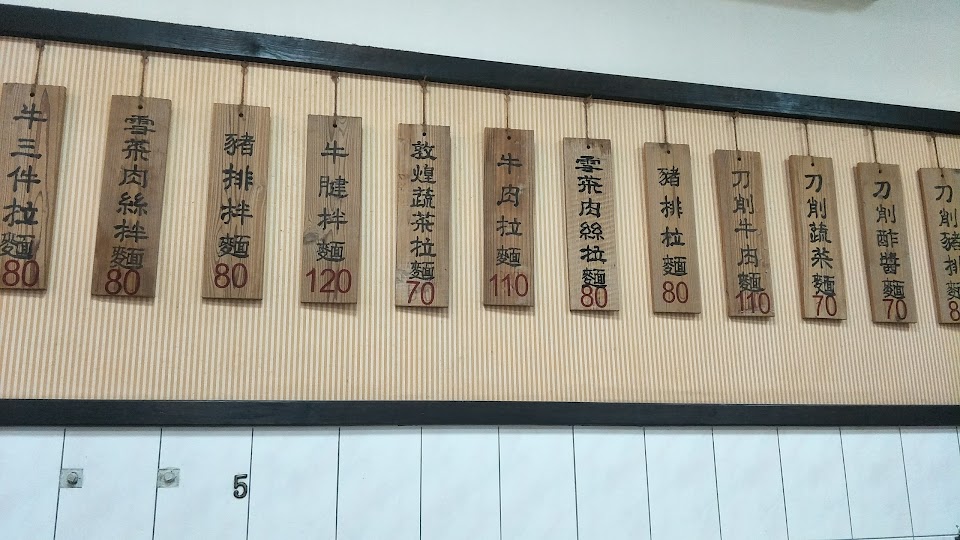 牛三件拉麵
80
雪菜肉絲拌麵
80
豬排拌麵
80
牛腱拌麵
120
敦煌蔬菜拉麵
70
牛肉拉麵
110
雪菜肉絲拉麵
80
豬排拉麵
80
刀削牛肉麵
110
刀削蔬菜麵
70
刀削酢醬麵
70
刀削豬排
5